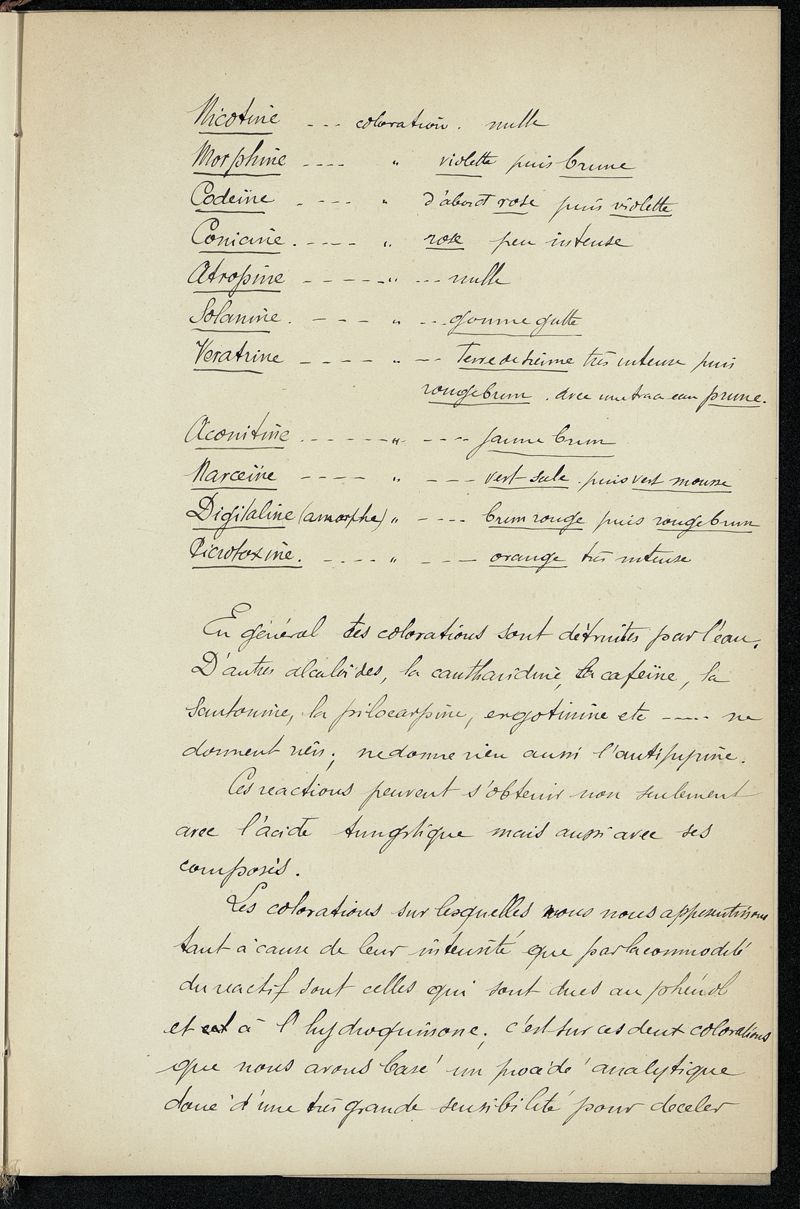 Nicotine --- coloration. nulle
Morphine ---- " violette puis brune
Codeine ---- " d'abord rose puis violette
Conicine. ---- " rose peu intense
Atropine ----- " --- nulle
Solanine. ---- " --- gomme gutte
Veratrine ---- " --- Terre de sienne très intense puis
rouge brun . avec une trace eau prune.
Aconitine ------ " ---- jaune brun
Narceïne ---- " --- vert sale. puis vert mousse
Digitaline (amorphe) " ---- brun rouge puis rouge brun
Picrotoxine. ---- " --- orange très intense
En général ces colorations sont détruites par l'eau.
D'autres alcaloïdes, la cantharidine, la cafeïne, la
Santonine, la pilocarpine, ergotinine etc ---- ne
donnent rien; ne donne rien aussi l'antipyrine.
Ces reactions peuvent s'obtenir non seulement
avec l'acide tungstique mais aussi avec ses
composés.
Les colorations sur lesquelles nous nous appesantissons
tant à cause de leur intensité que par la commodité
du reactif sont celles qui sont dues au phénol
et à l'hydroquinone; c'est sur ces deux colorations
que nous avons basé un procédé analytique
doué d'une très grande sensibilité pour deceler